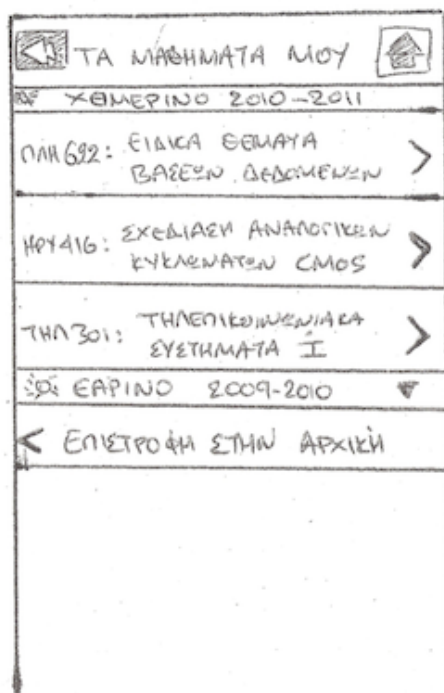 ΤΑ ΜΑΘΗΜΑΤΑ ΜΟΥ
ΧΕΙΜΕΡΙΝΟ 2010-2011
ΠΛΗ 692: ΕΙΔΙΚΑ ΘΕΜΑΤΑ
ΒΑΣΕΩΝ ΔΕΔΟΜΕΝΩΝ
ΗΡΥ416: ΣΧΕΔΙΑΣΗ ΑΝΑΛΟΓΙΚΩΝ
ΚΥΚΛΩΜΑΤΩΝ CMOS
ΤΗΛ301: ΤΗΛΕΠΙΚΟΙΝΩΝΙΑΚΑ
ΣΥΣΤΗΜΑΤΑ Ι
ΕΑΡΙΝΟ 2009-2010
< ΕΠΙΣΤΡΟΦΗ ΣΤΗΝ ΑΡΧΙΚΗ